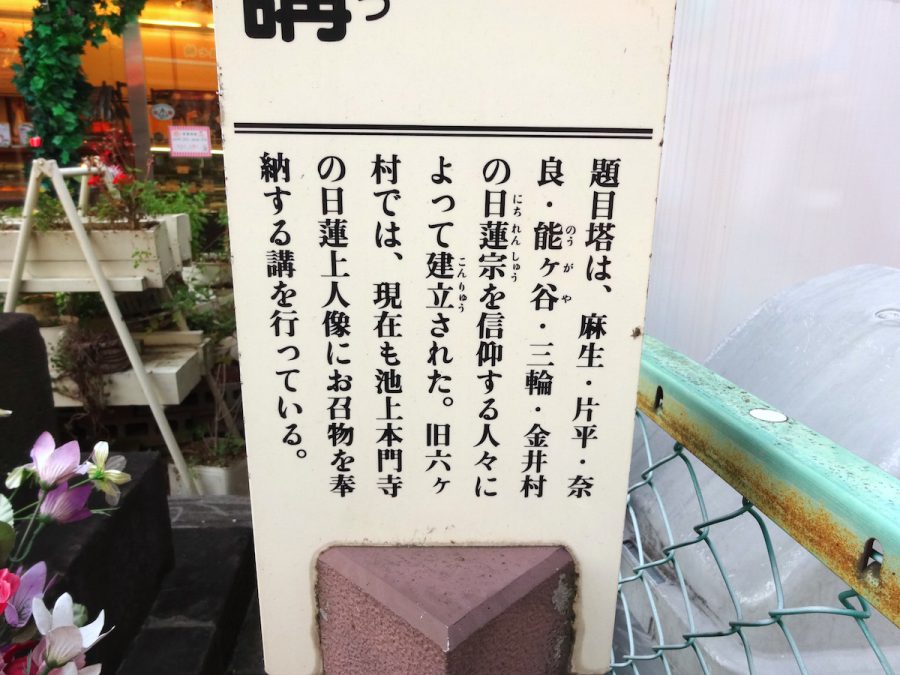 講
つ
題目塔は、麻生・片平・奈
良・能ヶ谷・三輪・金井村
のうがや
の日蓮宗を信仰する人々に
にちれんしゅう
よって建立された。旧六ヶ
こんりゅう
村では、現在も池上本門寺
の日蓮上人像にお召物を奉
納する講を行っている。